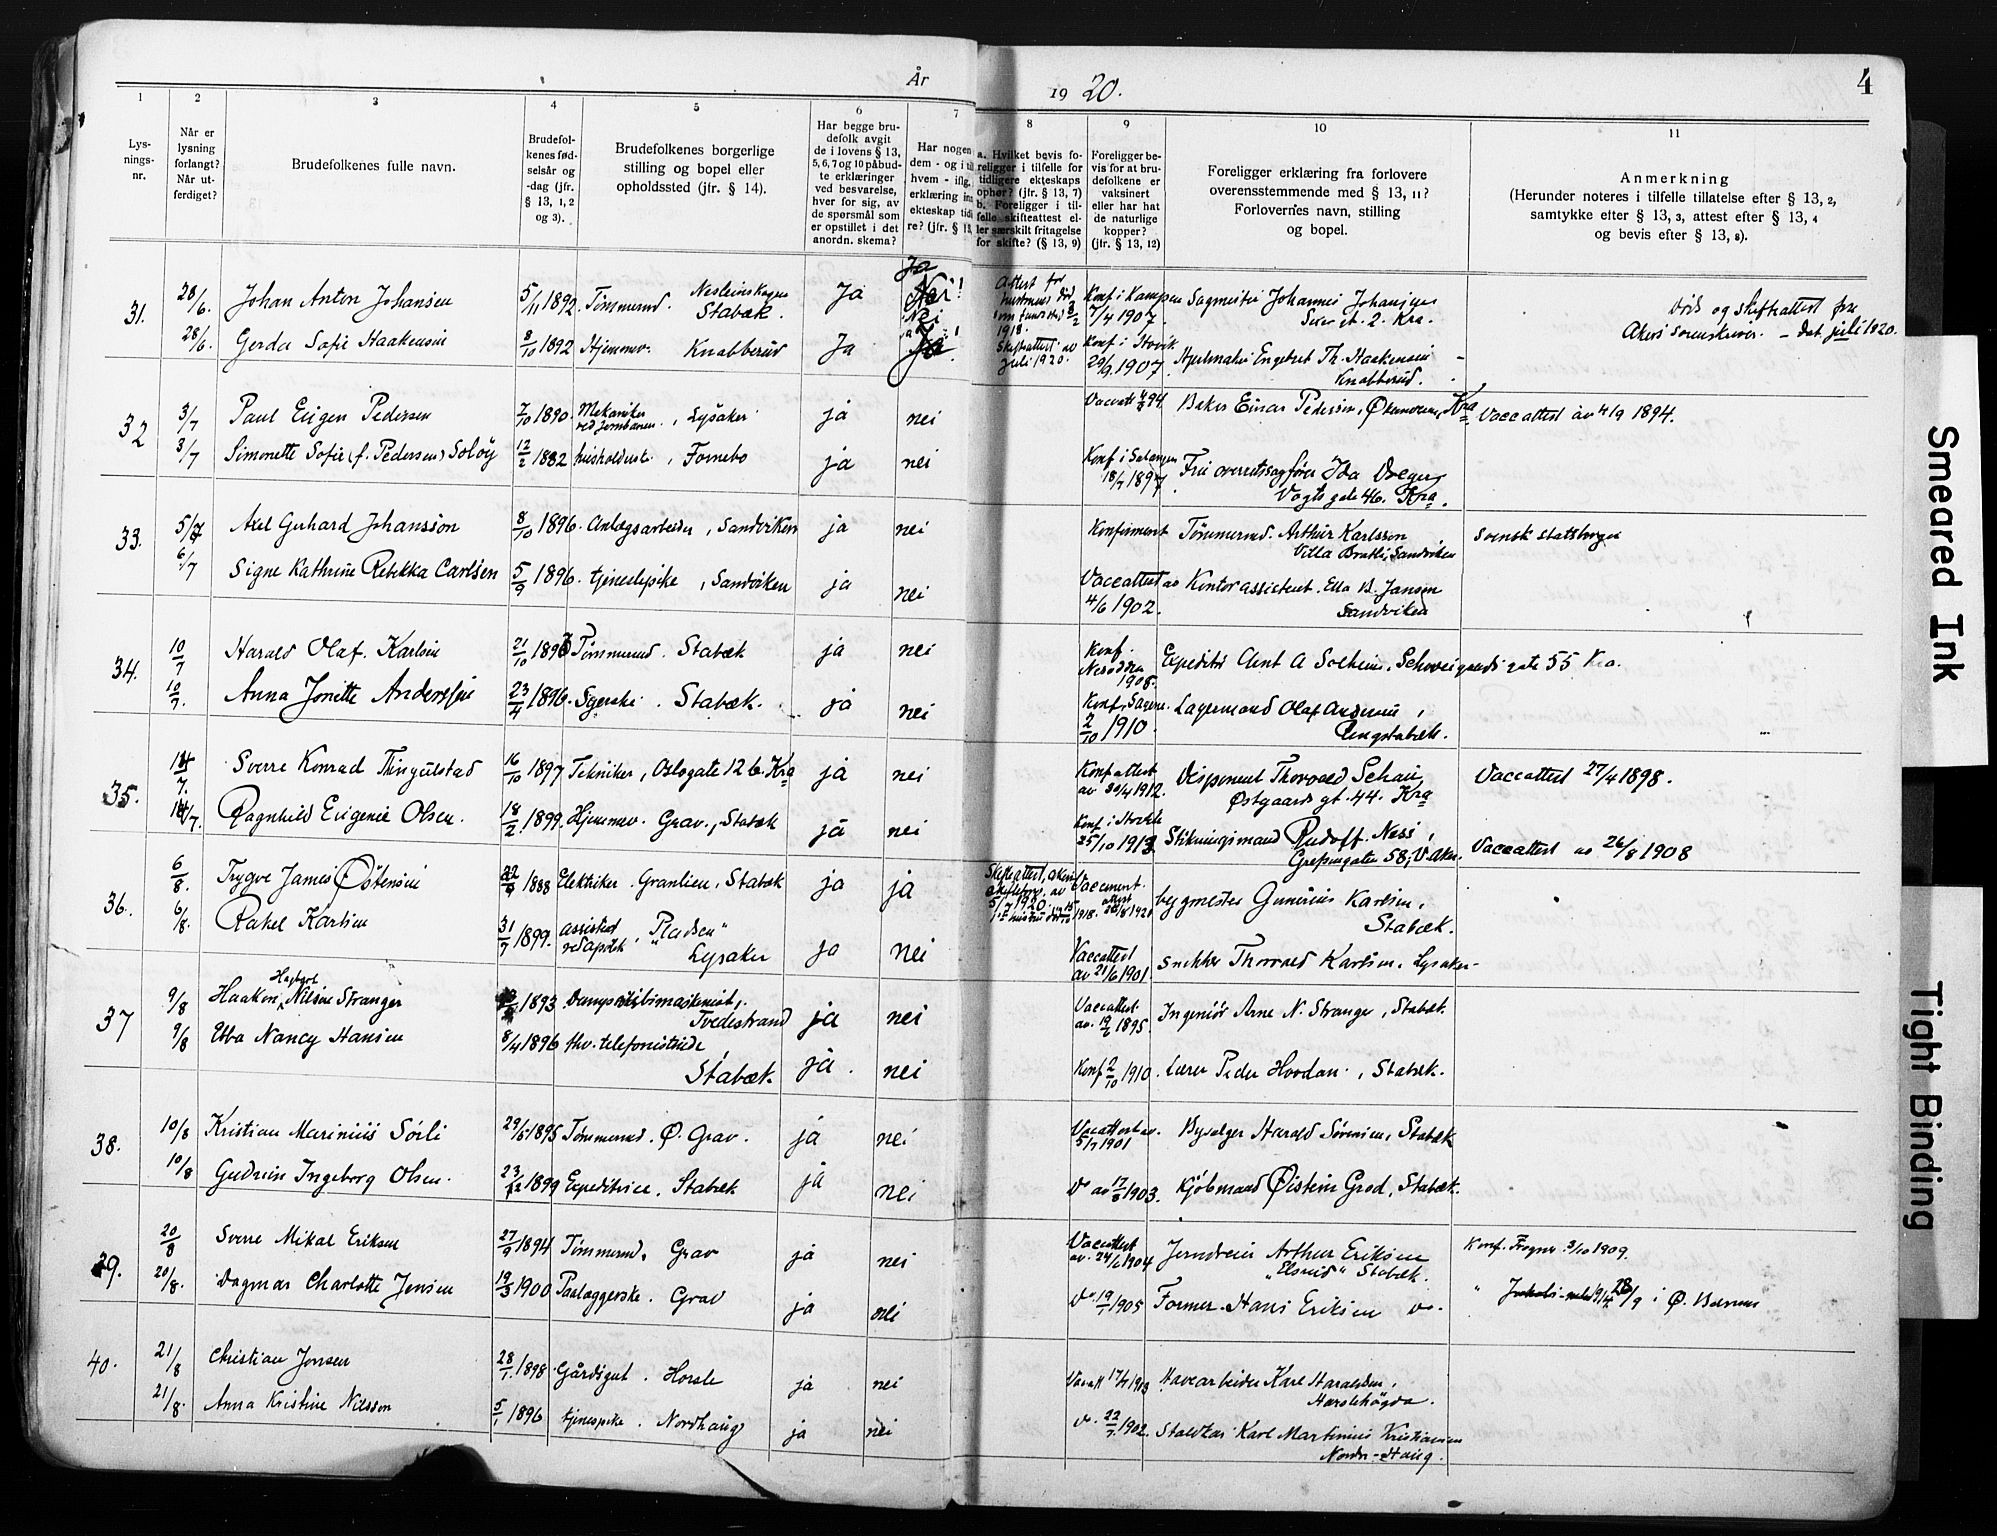 År
19 20.
4
1
2
3
4
5
6
7
8
9
10
11
Lys-
nings-
nr.
Når er
lysning
forlangt?
Når ut-
ferdiget?
Brudefolkenes fulle navn.
Brudefol-
kenes fød-
selsår og
-dag (jfr.
§ 13, 1, 2
og 3).
Brudefolkenes borgerlige
stilling og bopel eller
opholdssted (jfr. § 14).
Har begge bru-
defolk avgit
de i lovens § 13,
5, 6, 7 og 10 påbud-
te erklæringer
ved besvarelse,
hver for sig, av
de spørsmål som
er opstillet i det
anordn. skema?
Har nogen
dem - og i til
hvem - iflg.
erklæring in
ekteskap tidi
re? (jfr. § 13,
a. Hvilket bevis fo-
religger i tilfelle for
tidligere ekteskaps
ophør? (jfr. § 13, 7)
b. Foreligger i til-
felle skifteattest el-
ler særskilt fritagelse
for skifte? (§ 13, 9)
Foreligger be-
vis for at bru-
defolkene er
vaksinert
eller har hat
de naturlige
kopper?
(jfr. § 13, 12)
Foreligger erklæring fra forlovere
overensstemmende med § 13, 11?
Forlovernes navn, stilling
og bopel.
Anmerkning
(Herunder noteres i tilfelle tillatelse efter § 13, 2,
samtykke efter § 13, 3, attest efter § 13, 4
og bevis efter § 13, 8).
31. 28/6. Johan Anton Johansen 5/11 1892. Tømmermd. Stabæk. Ja Ja Nei! Konf i Kampen 7/4 1907. Johannes Kra.
Døds og Skifteattest fra
Akers Sorenskriver. – dat. juli 1920.
28/6. Gerda Sofie Haakensen 8/10 1892 Hjemmev. Knabberud Ja Skifteattest av juli 1920. 1907. Engebret Th. Haakensen
Knabberud.
32 3/7 Paul Eugen Pedersen 7/10 1890. Mekaniker ved Jernbanen, Lysaker ja nei Vaccatt 94 Baker Einar Pedersen, Kra Vaccattest av 4/9 1894.
3/7 Simonette Sofie (f. Pedersen) Soløy 12/2 1882 husholderske, Fornebo ja nei Konf i Salangen 18/7 1897. Fru overretssagfører Ida
Vogts gate 46. Kra.
33. 5/7 Axel Gerhard Johansson 8/10 1896. Anlægsarbeider, Sandviken ja nei Konfirmert Tømmermd. Arthur Karlsson, Svensk statsborger
Villa Bratli, Sandviken
6/7 Signe Kathrine Rebekka Carlsen 5/9 1896. tjenestepike, Sandviken ja nei Vaccattest av 4/6 1902. Kontorassistent. Ella B. Jansen
Sandviken
34. 10/7 Harald Olaf. Karlsen 21/10 Tømmermd. Stabæk ja nei Konf. Nesodden 1908. Expeditør A Solheim, Schweigaards gate 55 Kra.
10/7. Anna Jonette Anderssen 23/4 1896. Syerske. Stabæk. ja nei Konf. Sagene. 2/10 1910. Lagermand Olaf Andersen,
Ringstabæk.
35. 14/7. Sverre Konrad Thingulstad 16/10 1897 Tekniker, Oslogate 12 b. Kra ja nei Konf attest av 20/4 1912. Disponent Thorvald Schau, Vaccattest 27/4 1898.
Østgaards gt. 44. Kra
14/7. Ragnhild Eugenie Olsen. 18/2. 1899. Hjemmev. Grav., Stabæk ja nei Konf i 25/10 1913 Stikningsmand Rudolf. Ness, Vaccattest av 26/8 1908
Grefsengaten 58, V. Aker.
36. 6/8. Trygve James Østensen 1888 Elektriker. Granlien, Stabæk ja ja Vaccement. bygmester Gunerius Karlsen,
Stabæk.
6/8. Rakel Karlsen 31/7 1899. assistent ved apotek, "Pladsen"
Lysaker ja nei Vaccattest av 21/6 1901. snekker Thorvald Karlsen. Lysaker
37 9/8 Haakon, Nilsen Stranger 1893 Dampskibsmaskinist,
Tvedestrand ja nei Vaccattest av. 1895. Ingeniør Arne N. Stranger, Stabæk
9/8 Ebba Nancy Hansen 8/4 1896 fhv. telefonistinde,
Stabæk ja. nei Konf 2/10 1910. Lærer Peder Hovdan., Stabæk.
38. 10/8 Kristian Marinius Sörli 29/5 1895 Tømmermd. Ø. Grav. ja nei Vaccattest av. 5/7 1901 Harald Sörensen, Stabæk
10/8 Gudrun Ingeborg Olsen. 23/12 1899 Expeditrice. Stabæk ja nei Do av 17/8 1903. Kjöbmand Øistein Grod, Stabæk.
39. 20/8 Sverre Mikal Eriksen 27/9 1894 Tømmermd, Grav ja nei Vaccattest av. 24/6 1904 Arthur Eriksen Konf. Frogner 3/10 1909.
Stabæk.
20/8. Dagmar Charlotte Jensen 19/3 1900 Paalæggerske. Grav ja nei Do 19/7 1905 Former. Hans Eriksen do. " 28/9 i Ø. Bærum
40. 21/8 Christian Jonsen 28/1. 1898. Gårdsgut. Hosle ja nei Havearbeider Karl Haraldsen,
21/8. Anna Kristine Nilsson 5/1 1896 tjenepike. Nordhaug ja nei do. 22/7. 1902. Staldkar Karl Martinius Kristiansen
Nordr-Haug.
Smeared Ink
Tight Binding